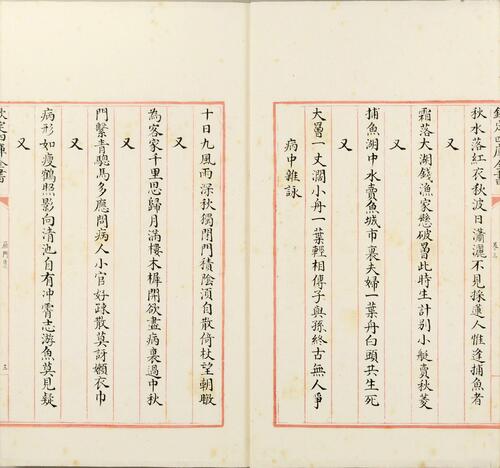 欽定四庫全書
卷三
秋水落紅衣秋波日瀟灑不見採蓮人惟逢捕魚者
又
霜落大湖錢漁家懸破罾此時生計别小艇賣秋菱
又
捕魚湖中水賣魚城市裏夫婦一葉舟白頭共生死
又
大罾一丈濶小舟一葉輕相傳子與孫終古無人爭
病中雜詠
十日九風雨深秋獨閉門積陰須自散倚杖望朝暾
又
為客家千里思歸月滿樓木樨開欲盡病裏過中秋
又
門繫青驄馬多應問病人小官好疎散莫訝嬾衣巾
又
病形如瘦鶴照影向清池自有冲霄志游魚莫見疑
又
欽定四庫全書
三